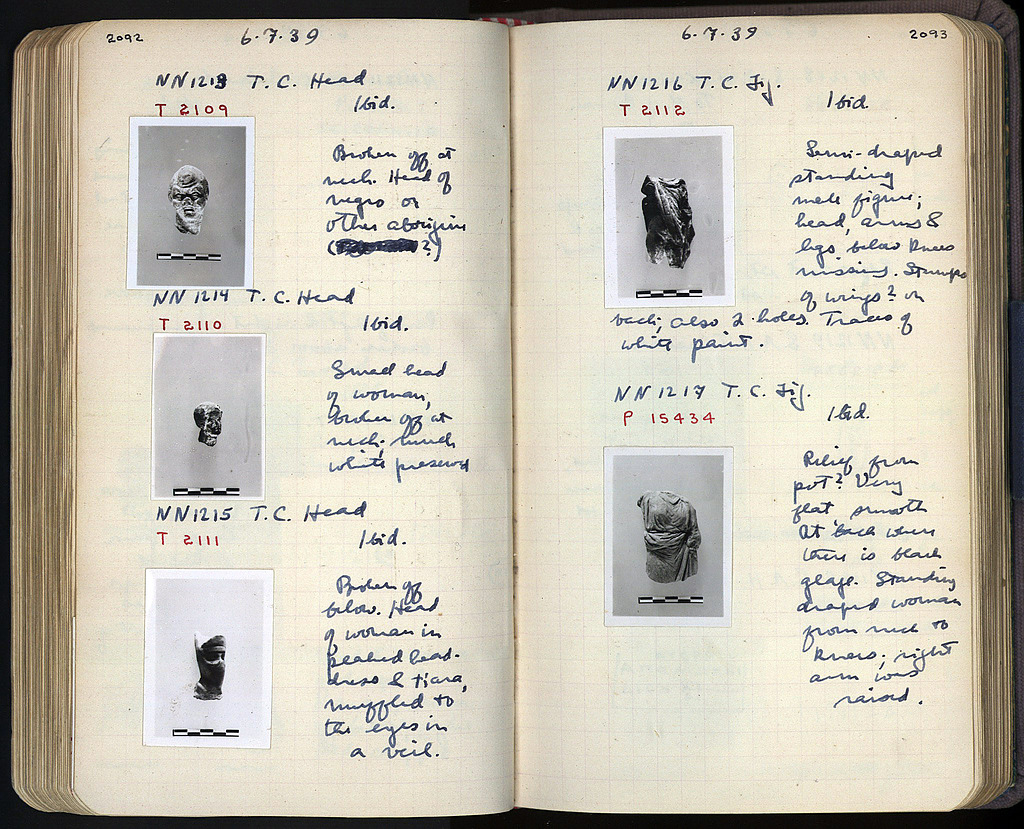 2092
6·7·39
NN1213 T.C. Head
T 2109
Ibid.
Broken off at
neck. Head of
negro or
other aborigine
( ?)
NN 1214 T.C. Head
T 2110
Ibid.
Small head
of woman,
broken off at
neck; much
white preserved
NN1215 T.C. Head
T 2111
Ibid.
Broken off
below. Head
of woman in
peaked head-
dress & tiara,
muffled to
the eyes in
a veil.
6·7·39
2093
NN1216 T.C. Fig.
T 2112
Ibid.
Semi-draped
standing
male figure;
head, arms &
legs below knees
missing. Stumps
of wings? on
back; also 2 holes. Traces of
white paint.
NN 1217 T.C. Fig.
P 15434
Ibid.
Relief from
pot? Very
flat smooth
at back where
there is black
glaze. Standing
draped woman
from neck to
knees; right
arm was
raised.